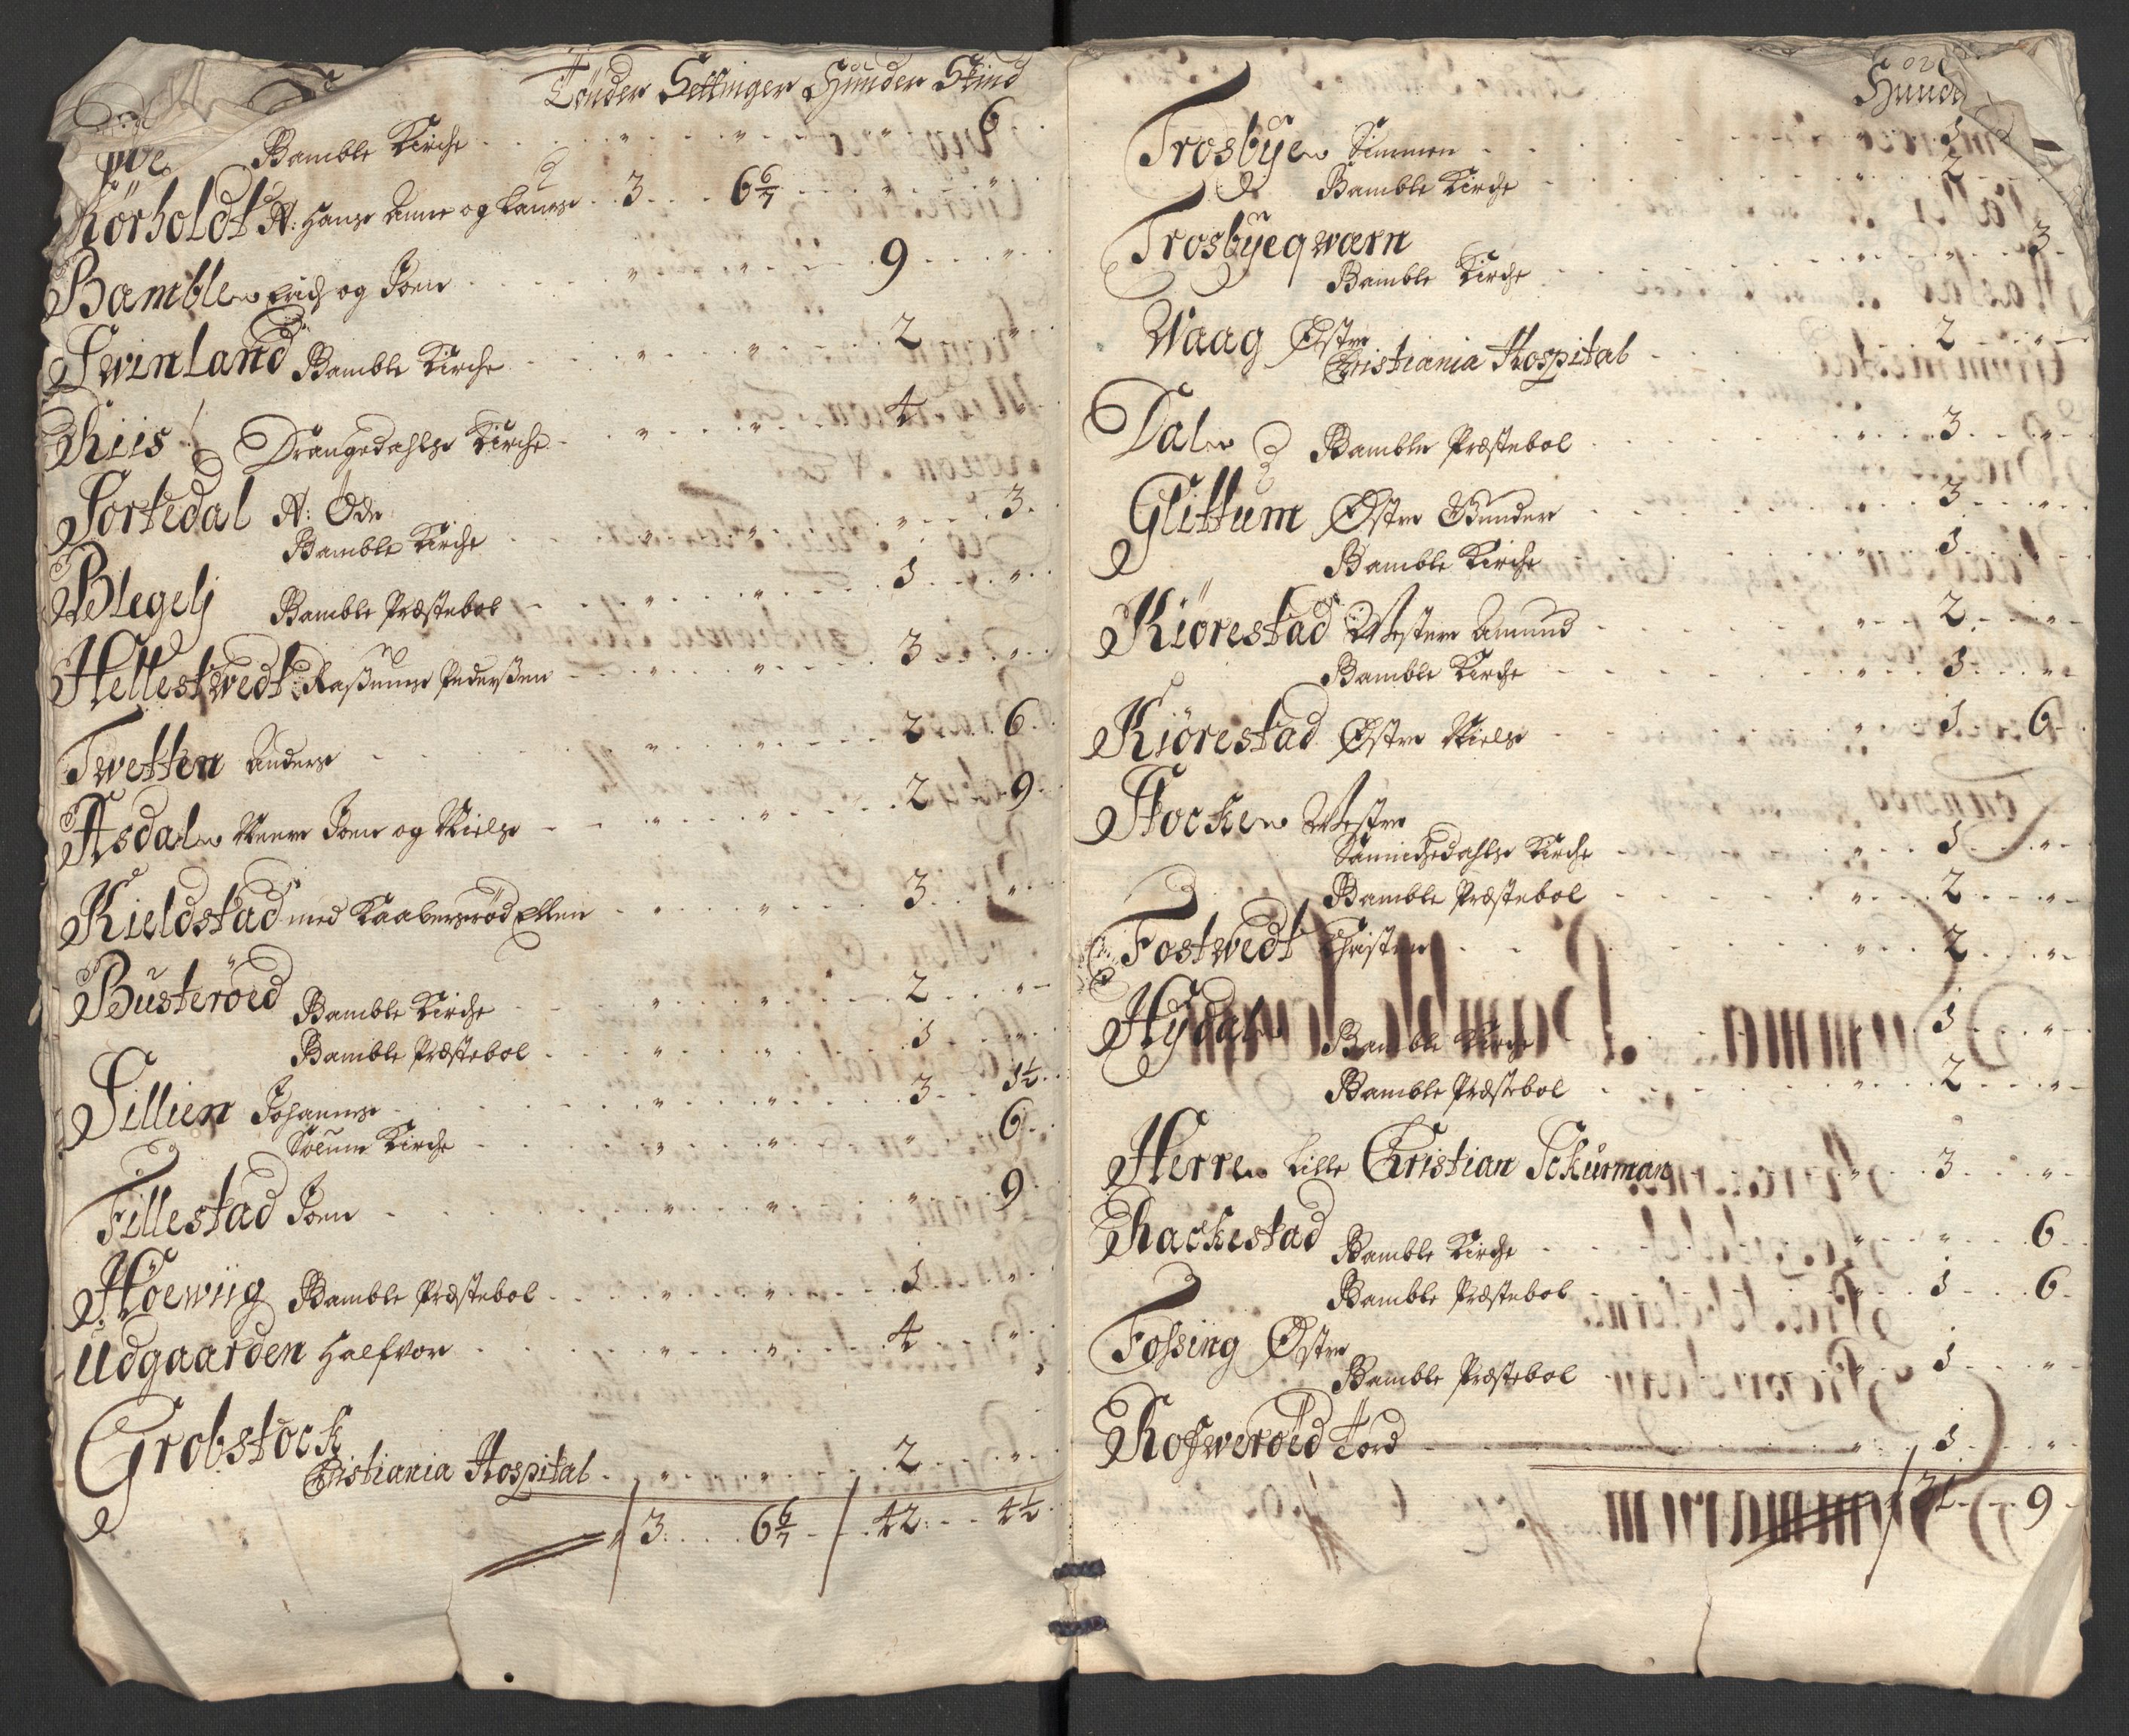 Tönder Settinger Hunder Skind
Bamble Kirche " " " 6
Körholdt A: Hans Anne og Laurs 3 6 6/7 " "
Bamble Erich og Joen " " 9 "
Swinland Bamble Kirche " " 2 "
Riis Drangedahls Kirche " " 4 "
Sortedal A: Öde
Bamble Kirche " " " 3
Blegelj Bamble Præstebol " " 1 "
Hellestwedt Rasmus Pedersen " " 3 "
Twetten Anders " " 2 6
Asdal Neere Joen og Niels " " 2 9
Kieldstad med Kaabersröd Ellen " " 3 "
Busteröed Bamble Kirche " " 2 "
Bamble Præstebol " " 1 "
Sillien Johannes " " 3 1½
Solum Kirche " " " 6
Fillestad Joen " " " 9
Höewiig Bamble Præstebol " " 1 "
Udgaarden Halfvor " " 4 "
Grobstock
Christiania Hospital " " 2 "
3 6 6/7 42 4½
Hunde
Trosbye Simmen 1
Bamble Kirche " 2
Trosbyeqwærn
Bamble Kirche " " 3
Waag Østre
Christiania Hospital 2 "
Dal Bamble Præstebol " 3 "
Glittum Østre Gunder " 3 "
Bamble Kirche " 1 "
Kiörestad Westere Amund " 2 "
Bamble Kirche " 1 "
Kiörestad Østre Niels " 1 6
Stocke Westre
Sannichedahls Kirche " 1 "
Bamble Præstebol " 2 "
Fostwedt Christen " 2 "
Hydal Bamble Kirche " 1 "
Bamble Præstebol " 2 "
Herre Lille Christian Schurman " 3 "
Rackestad Bamble Kirche " " 6
Bamble Præstebol " 1 6
Fossing Østre
Bamble Præstebol " 1 "
Rosweröed Tord " 1 "
31 9